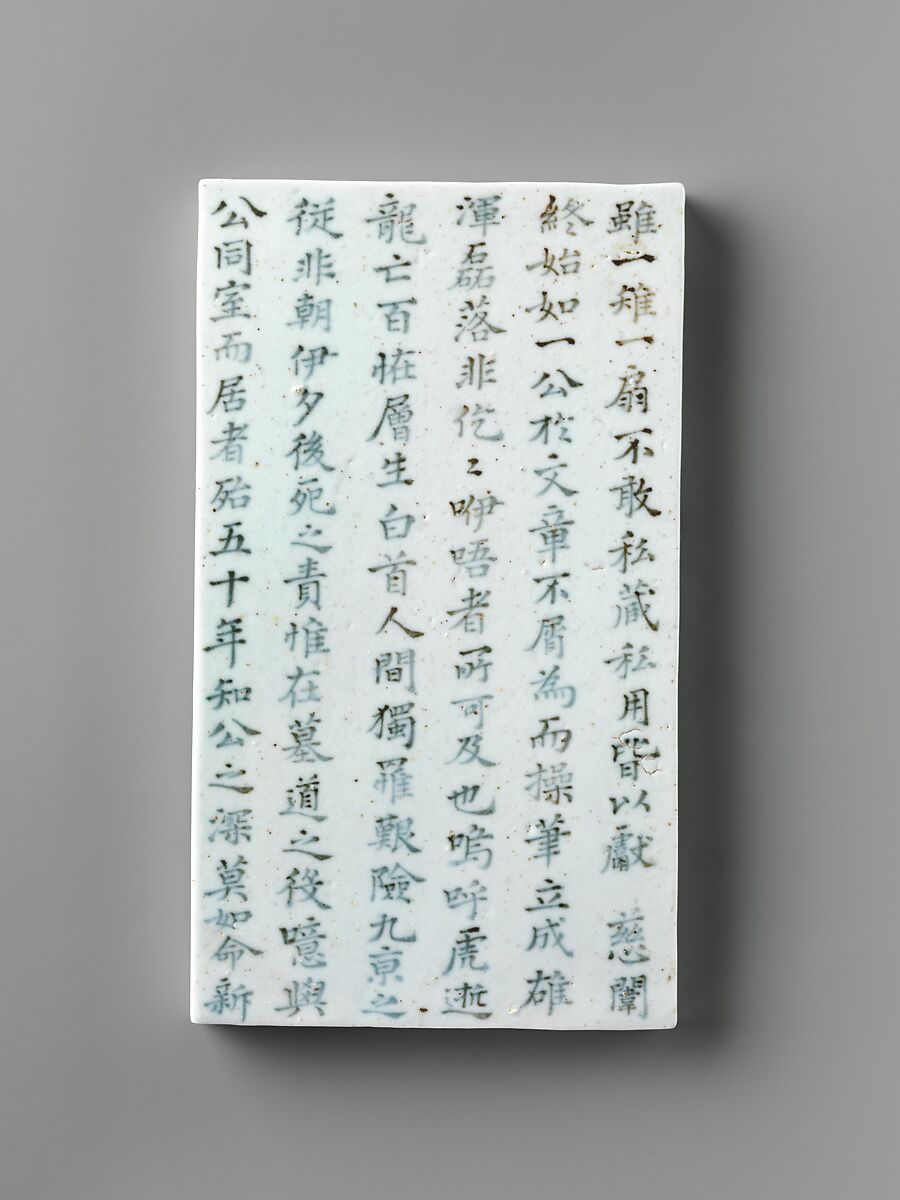 雖一雉一扇不敢私藏私用皆以獻 慈闈
終始如一公於文章不屑為而操筆立成雄
渾磊落非佗〻咿唔者所可及也嗚呼虎逝
龍亡百恠層生白首人間獨罹艱險九京之
從非朝伊夕後死之責惟在墓道之役噫與
公同室而居者殆五十年知公之深莫如命新